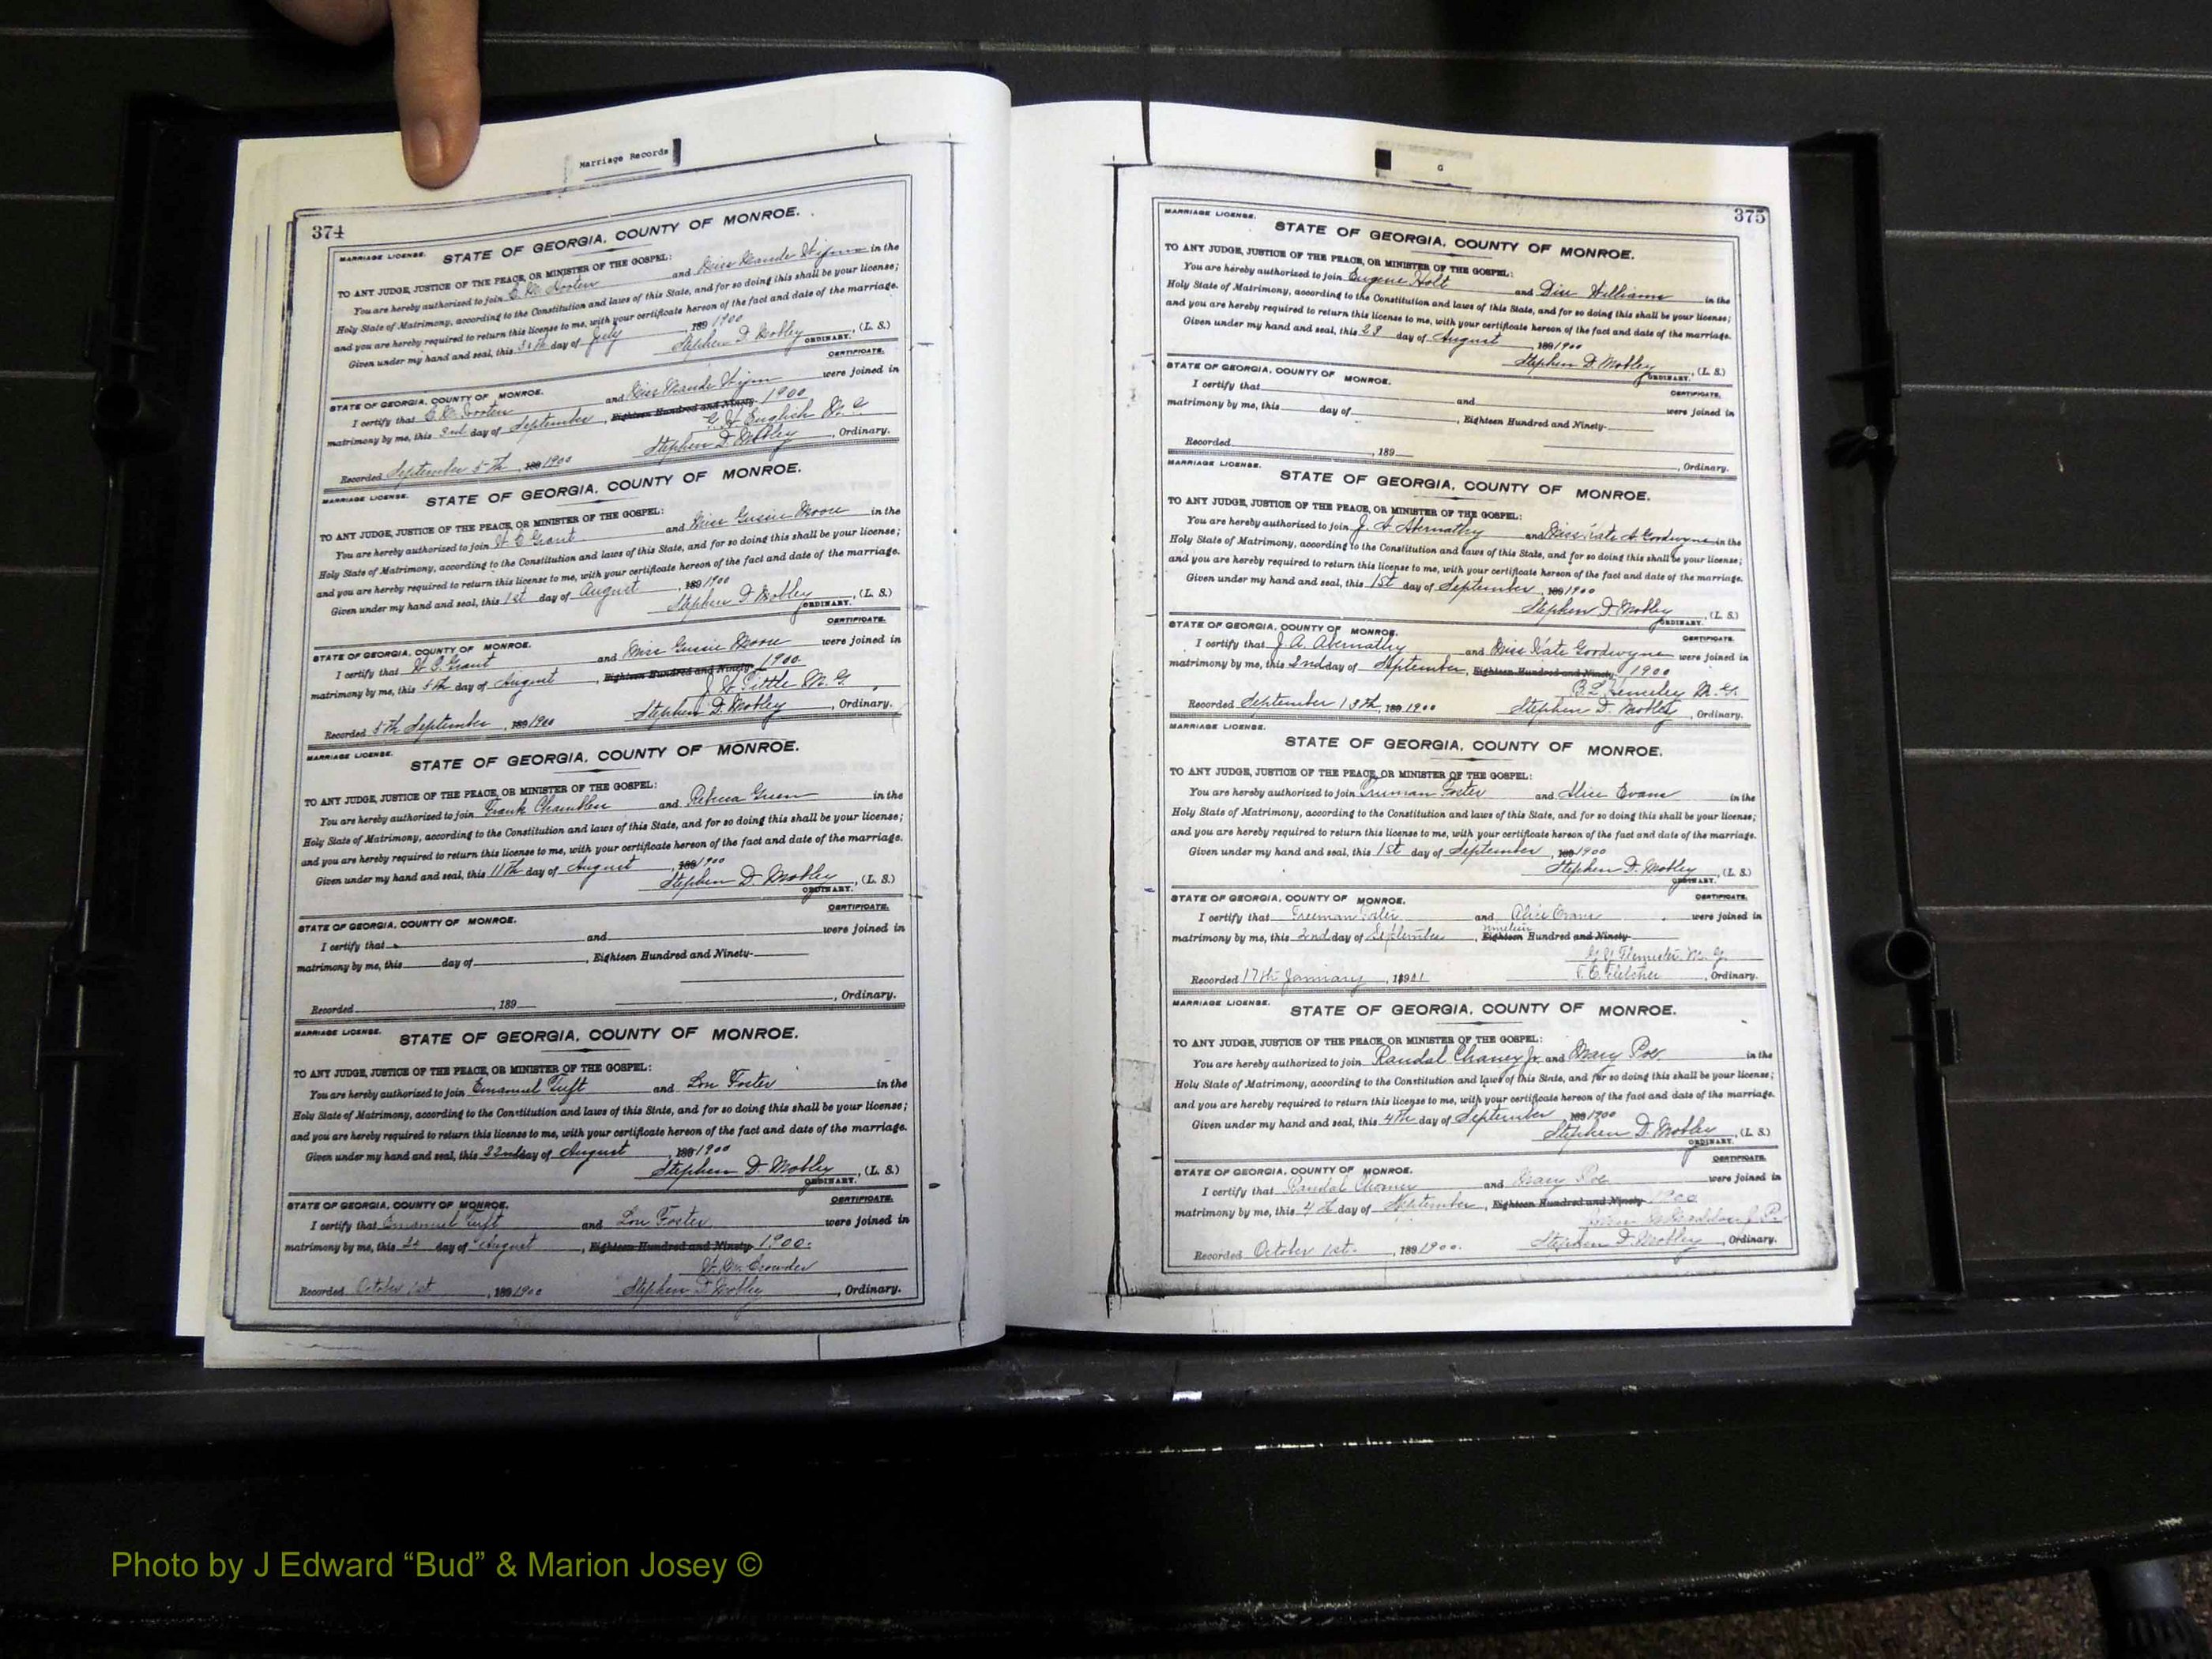 Marriage Records
374
MARRIAGE LICENSE. STATE OF GEORGIA, COUNTY OF MONROE.
TO ANY JUDGE, JUSTICE OF THE PEACE, OR MINISTER OF THE GOSPEL:
You are hereby authorized to join and Miss Maude in the
Holy State of Matrimony, according to the Constitution and laws of this State, and for so doing this shall be your license;
and you are hereby required to return this license to me, with your certificate hereon of the fact and date of the marriage.
Given under my hand and seal, this day of July, 189 1900
Stephen D. Mobley, (L. S.)
ORDINARY.
CERTIFICATE.
STATE OF GEORGIA, COUNTY OF MONROE.
I certify that and Miss Maude were joined in
matrimony by me, this 2nd day of September, Eighteen Hundred and Ninety 1900
English M. G.
Recorded September 5th, 189 1900 Stephen D. Mobley, Ordinary.
MARRIAGE LICENSE. STATE OF GEORGIA, COUNTY OF MONROE.
TO ANY JUDGE, JUSTICE OF THE PEACE, OR MINISTER OF THE GOSPEL:
You are hereby authorized to join Grant and Miss Gussie Moore in the
Holy State of Matrimony, according to the Constitution and laws of this State, and for so doing this shall be your license;
and you are hereby required to return this license to me, with your certificate hereon of the fact and date of the marriage.
Given under my hand and seal, this 1st day of August, 189 1900
Stephen D. Mobley, (L. S.)
ORDINARY.
CERTIFICATE.
STATE OF GEORGIA, COUNTY OF MONROE.
I certify that Grant and Miss Gussie Moore were joined in
matrimony by me, this 5th day of August, Eighteen Hundred and Ninety 1900.
M. G.
Recorded 5th September, 189 1900 Stephen D. Mobley, Ordinary.
MARRIAGE LICENSE. STATE OF GEORGIA, COUNTY OF MONROE.
TO ANY JUDGE, JUSTICE OF THE PEACE, OR MINISTER OF THE GOSPEL:
You are hereby authorized to join Frank Chambliss and Rebecca Green in the
Holy State of Matrimony, according to the Constitution and laws of this State, and for so doing this shall be your license;
and you are hereby required to return this license to me, with your certificate hereon of the fact and date of the marriage.
Given under my hand and seal, this 11th day of August, 189 1900
Stephen D. Mobley, (L. S.)
ORDINARY.
CERTIFICATE.
STATE OF GEORGIA, COUNTY OF MONROE.
I certify that and were joined in
matrimony by me, this day of, Eighteen Hundred and Ninety-
Recorded, 189 , Ordinary.
MARRIAGE LICENSE. STATE OF GEORGIA, COUNTY OF MONROE.
TO ANY JUDGE, JUSTICE OF THE PEACE, OR MINISTER OF THE GOSPEL:
You are hereby authorized to join Emanuel Tuft and Lou Foster in the
Holy State of Matrimony, according to the Constitution and laws of this State, and for so doing this shall be your license;
and you are hereby required to return this license to me, with your certificate hereon of the fact and date of the marriage.
Given under my hand and seal, this 22nd day of August, 189 1900
Stephen D. Mobley, (L. S.)
ORDINARY.
CERTIFICATE.
STATE OF GEORGIA, COUNTY OF MONROE.
I certify that Emanuel Tuft and Lou Foster were joined in
matrimony by me, this day of August, Eighteen Hundred and Ninety 1900.
Crowder
Recorded October 1st, 189 1900 Stephen D. Mobley, Ordinary.
G
375
MARRIAGE LICENSE. STATE OF GEORGIA, COUNTY OF MONROE.
TO ANY JUDGE, JUSTICE OF THE PEACE, OR MINISTER OF THE GOSPEL:
You are hereby authorized to join Eugene Holt and Williams in the
Holy State of Matrimony, according to the Constitution and laws of this State, and for so doing this shall be your license;
and you are hereby required to return this license to me, with your certificate hereon of the fact and date of the marriage.
Given under my hand and seal, this day of August, 189 1900
Stephen D. Mobley, (L. S.)
ORDINARY.
CERTIFICATE.
STATE OF GEORGIA, COUNTY OF MONROE.
I certify that and were joined in
matrimony by me, this day of, Eighteen Hundred and Ninety-
Recorded, 189 , Ordinary.
MARRIAGE LICENSE. STATE OF GEORGIA, COUNTY OF MONROE.
TO ANY JUDGE, JUSTICE OF THE PEACE, OR MINISTER OF THE GOSPEL:
You are hereby authorized to join J. A. Abernathy and Miss Kate A Goodwyne in the
Holy State of Matrimony, according to the Constitution and laws of this State, and for so doing this shall be your license;
and you are hereby required to return this license to me, with your certificate hereon of the fact and date of the marriage.
Given under my hand and seal, this 1st day of September, 189 1900
Stephen D. Mobley, (L. S.)
ORDINARY.
CERTIFICATE.
STATE OF GEORGIA, COUNTY OF MONROE.
I certify that J. A. Abernathy and Miss Kate Goodwyne were joined in
matrimony by me, this 2nd day of September, Eighteen Hundred and Ninety 1900
M. G.
Recorded September 13th, 189 1900 Stephen D. Mobley, Ordinary.
MARRIAGE LICENSE. STATE OF GEORGIA, COUNTY OF MONROE.
TO ANY JUDGE, JUSTICE OF THE PEACE, OR MINISTER OF THE GOSPEL:
You are hereby authorized to join Foster and Alice Evans in the
Holy State of Matrimony, according to the Constitution and laws of this State, and for so doing this shall be your license;
and you are hereby required to return this license to me, with your certificate hereon of the fact and date of the marriage.
Given under my hand and seal, this 1st day of September, 189 1900
Stephen D. Mobley, (L. S.)
ORDINARY.
CERTIFICATE.
STATE OF GEORGIA, COUNTY OF MONROE.
I certify that Freeman Foster and Alice Evans were joined in
matrimony by me, this 2nd day of September, Eighteen nineteen Hundred and Ninety-
Flemister M. G.
Recorded 17th January, 1901 Fletcher, Ordinary.
MARRIAGE LICENSE. STATE OF GEORGIA, COUNTY OF MONROE.
TO ANY JUDGE, JUSTICE OF THE PEACE, OR MINISTER OF THE GOSPEL:
You are hereby authorized to join Randal Chaney Jr. and Mary Poe in the
Holy State of Matrimony, according to the Constitution and laws of this State, and for so doing this shall be your license;
and you are hereby required to return this license to me, with your certificate hereon of the fact and date of the marriage.
Given under my hand and seal, this 4th day of September, 189 1900
Stephen D. Mobley, (L. S.)
ORDINARY.
CERTIFICATE.
STATE OF GEORGIA, COUNTY OF MONROE.
I certify that Randal and Mary Poe were joined in
matrimony by me, this 4th day of September, Eighteen Hundred and Ninety 1900
Recorded October 1st., 189 1900. Stephen D. Mobley, Ordinary.
Photo by J Edward “Bud” & Marion Josey ©